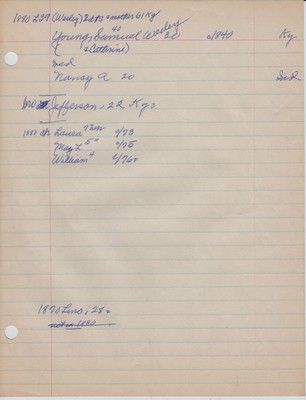 1880 239 (Wesley) & mother 61 Ky
Young, Samuel Wesley 40 o/1840 Ky
(& Catherine)
med
Nancy A 20 Ind
Jefferson, 22 Ky
1880 ch Laura 7 o/73
May L 5 o/75
William 4 o/76
1870 Lens, 28
not in 1880